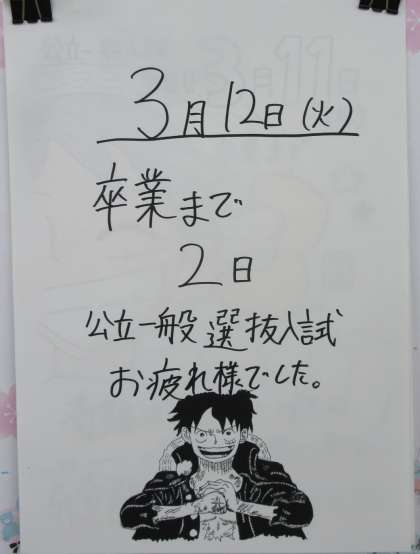 3月12日(火)
卒業まで
2日
公立一般選抜入試
お疲れ様でした。